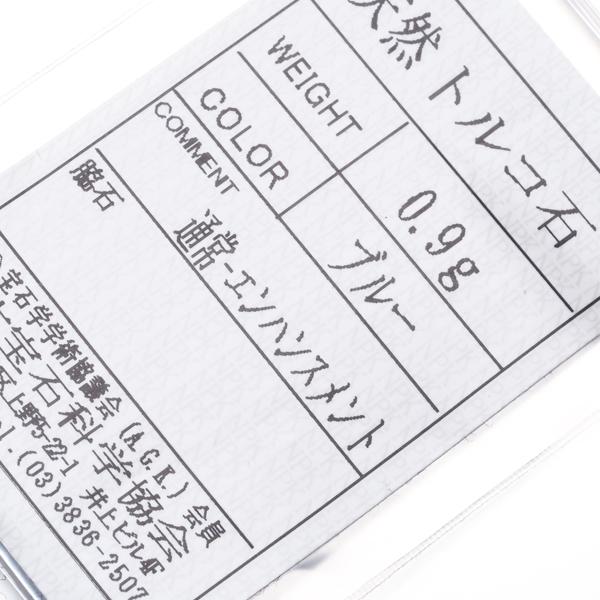 天然 トルコ石
WEIGHT 0.9g
COLOR ブルー
COMMENT 通常-エンハンスメント
脇石
宝石学学術協議会 (A.G.K.) 会員
宝石科学協会
上野5-22-1 井上ビル4F
(03)3836-2507